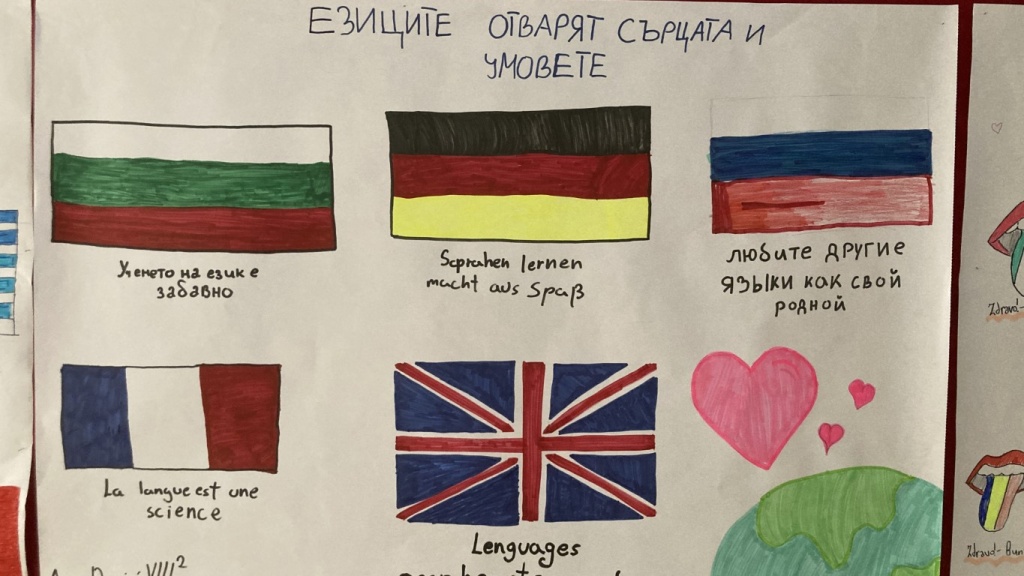 ЕЗИЦИТЕ ОТВАРЯТ СЪРЦАТА И
УМОВЕТЕ
Ученето на език е
забавно
Scprahen lernen
macht aus Spaß
любите другие
языки как свой
родной
La langue est une
science
Lenguages
VIII²
Zdravd-
Zdravd-Bun